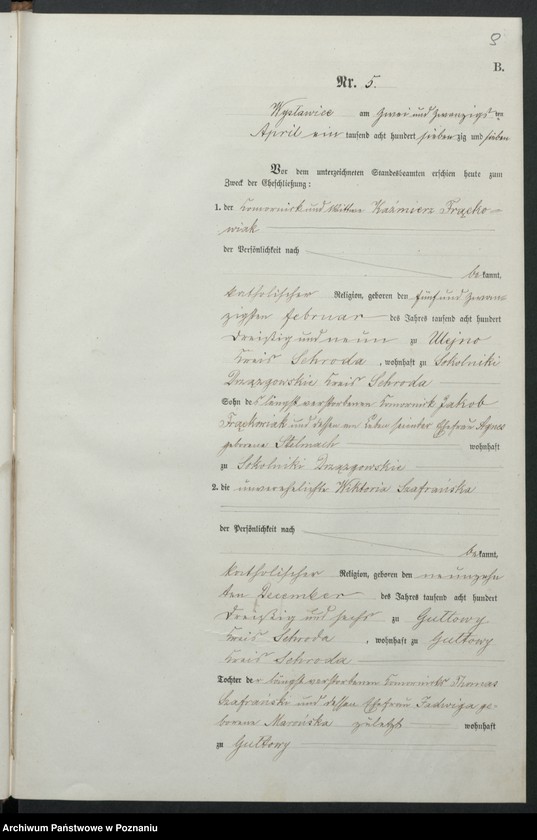 9
B.
Nr. 5.
Wysławice am zwei und zwanzigsten
April ein tausend acht hundert sieben zig und sieben
Vor dem unterzeichneten Standesbeamten erschien heute zum
Zweck der Eheschließung:
1. der Komornick und Wittwer Kaźmierz Frącko-
wiak
der Persönlichkeit nach
bekannt,
katholischer Religion, geboren den fünf und zwan-
zigsten Februar des Jahres tausend acht hundert
dreißig und neun zu Ulejno
Kreis Schroda, wohnhaft zu Sokolniki
Drzązgowskie Kreis Schroda
Sohn des längst verstorbenen Komornik Jakob
Frąckowiak und dessen am Leben Ehefrau Agnes
geborene Stelmach wohnhaft
zu Sokolniki Drzązgowskie
2. die unverehelichte Wiktoria Szafrańska
der Persönlichkeit nach
bekannt,
katholischer Religion, geboren den neunzehn
ten December des Jahres tausend acht hundert
dreißig und sechs zu Gultowy
Kreis Schroda, wohnhaft zu Gultowy
Kreis Schroda
Tochter der längst verstorbenen Komorniks Thomas
Szafrański und dessen Ehefrau Jadwiga ge-
borene Marońska zuletzt wohnhaft
zu Gultowy
Archiwum Państwowe w Poznaniu